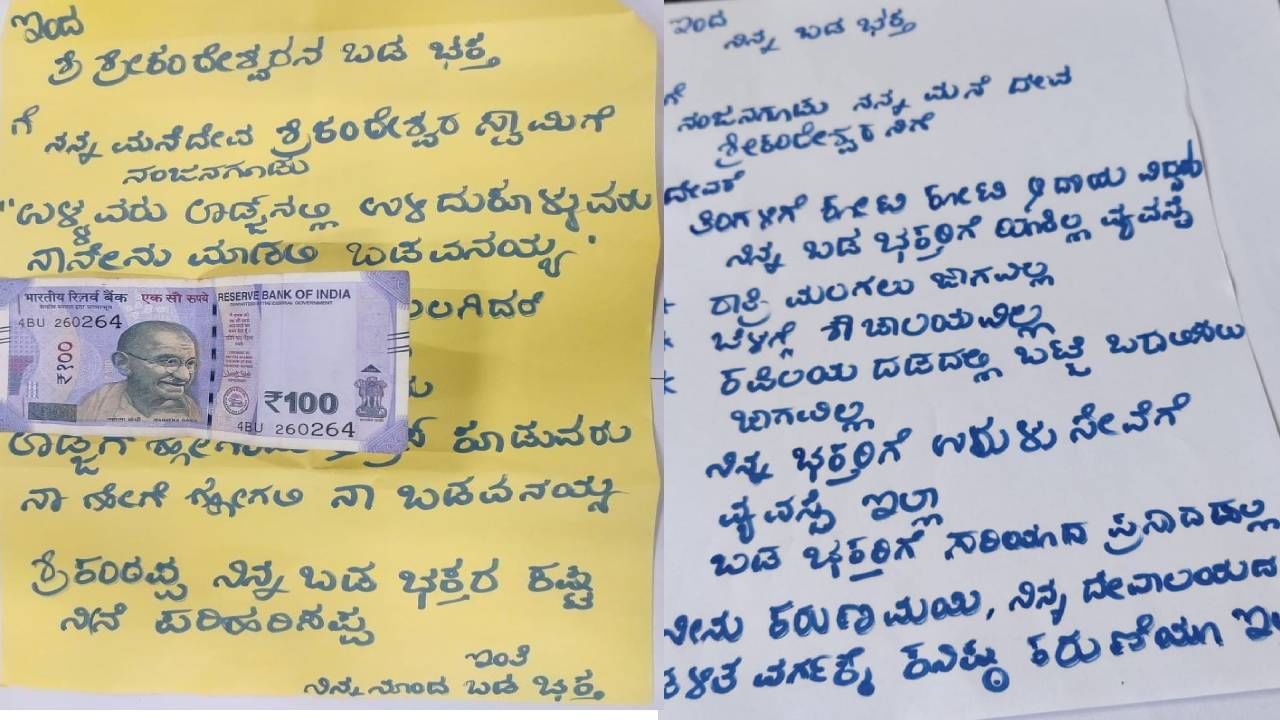 ಇಂದ
ಶ್ರೀ ಶ್ರೀಕಂಠೇಶ್ವರನ ಬಡ ಭಕ್ತ
ಗೆ
ನನ್ನ ಮನೆದೇವ ಶ್ರೀಕಂಠೇಶ್ವರ ಸ್ವಾಮಿಗೆ
ನಂಜನಗೂಡು
"ಉಳ್ಳವರು ಲಾಡ್ಜ್‌ನಲ್ಲಿ ಉಳಿದುಕೊಳ್ಳುವರು
ನಾನೇನು ಮಾಡಲಿ ಬಡವನಯ್ಯ"
ಮಲಗಿದರೆ
भारतीय रिज़र्व बैंक एक सौ रुपये RESERVE BANK OF INDIA
4BU 260264
₹१००
₹100
4BU 260264
ಕೂಡುವರು
ನಾ ಹೇಗೆ ಹೋಗಲಿ ನಾ ಬಡವನಯ್ಯ
ಶ್ರೀಕಂಠಪ್ಪ ನಿನ್ನ ಬಡ ಭಕ್ತರ ಕಷ್ಟ
ನೀನೆ ಪರಿಹರಿಸಪ್ಪ
ಇಂತಿ
ನಿನ್ನ ನೊಂದ ಬಡ ಭಕ್ತ
ಇಂದ
ನಿನ್ನ ಬಡ ಭಕ್ತ
ಗೆ
ನಂಜನಗೂಡು ನನ್ನ ಮನೆ ದೇವ
ಶ್ರೀಕಂಠೇಶ್ವರನಿಗೆ
ದೇವರೆ
ತಿಂಗಳಿಗೆ ಕೋಟಿ ಕೋಟಿ ಆದಾಯ ವಿದ್ದರು
ನಿನ್ನ ಬಡ ಭಕ್ತರಿಗೆ ಯಾಕಿಲ್ಲ ವ್ಯವಸ್ಥೆ
* ರಾತ್ರಿ ಮಲಗಲು ಜಾಗವಿಲ್ಲ
* ಬೆಳಗ್ಗೆ ಶೌಚಾಲಯವಿಲ್ಲ
* ಕಪಿಲಯ ದಡದಲ್ಲಿ ಬಟ್ಟೆ ಬದಲಿಸಲು
ಜಾಗವಿಲ್ಲ
ನಿನ್ನ ಭಕ್ತರಿಗೆ ಉರುಳು ಸೇವೆಗೆ
ವ್ಯವಸ್ಥೆ ಇಲ್ಲಾ
ಬಡ ಭಕ್ತರಿಗೆ ಸರಿಯಾದ ಪ್ರಸಾದವಿಲ್ಲ
ನೀನು ಕರುಣಾಮಯಿ, ನಿನ್ನ ದೇವಾಲಯದ
ವರ್ಗಕ್ಕೆ ಕನಿಷ್ಠ ಕರುಣೆಯೂ